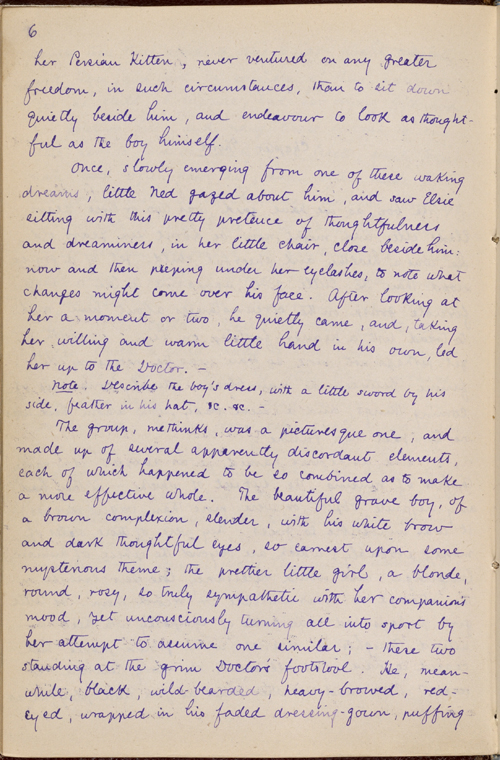 6
her Persian Kitten, never ventured on any greater
freedom, in such circumstances, than to sit down
quietly beside him, and endeavour to look as thought-
ful as the boy himself.
Once, slowly emerging from one of these waking
dreams, little Ned gazed about him, and saw Elsie
sitting with this pretty pretence of thoughtfulness
and dreaminess, in her little chair, close beside him:
now and then peeping under her eyelashes, to note what
changes might come over his face. After looking at
her a moment or two, he quietly came, and, taking
her willing and warm little hand in his own, led
her up to the Doctor. —
Note. Describe the boy's dress, with a little sword by his
side, feather in his hat, &c. &c. —
The group, methinks, was a picturesque one, and
made up of several apparently discordant elements,
each of which happened to be so combined as to make
a more effective whole. The beautiful grave boy, of
a brown complexion, slender, with his white brow
and dark thoughtful eyes, so earnest upon some
mysterious theme; the prettier little girl, a blonde,
round, rosy, so truly sympathetic with her companion's
mood, yet unconsciously turning all into sport by
her attempt to assume one similar; — these two
standing at the grim Doctor's footstool. He, mean-
while, black, wild-bearded, heavy-browed, red-
eyed, wrapped in his faded dressing-gown, puffing